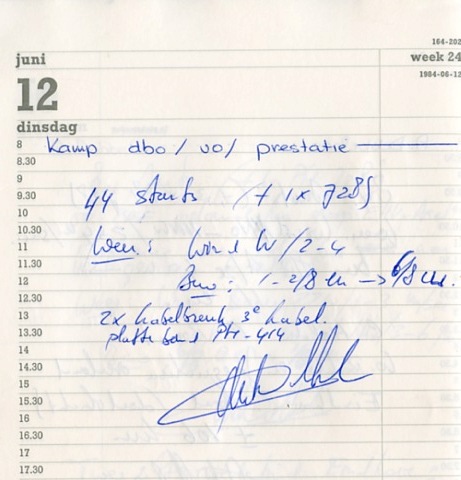 164-202
juni
week 24
1984-06-12
12
dinsdag
8 Kamp dbo / vo / prestatie
8.30
9
9.30 44 starts (+ 1x 728)
10
10.30
11 Weer: Wind W / 2-4
11.30
12 Bew: 1-2/8 Cu → 6/8 Cu.
12.30
13 2x kabelbreuk, 3e kabel.
13.30 platte band PH-414
14
14.30
15
15.30
16
16.30
17
17.30